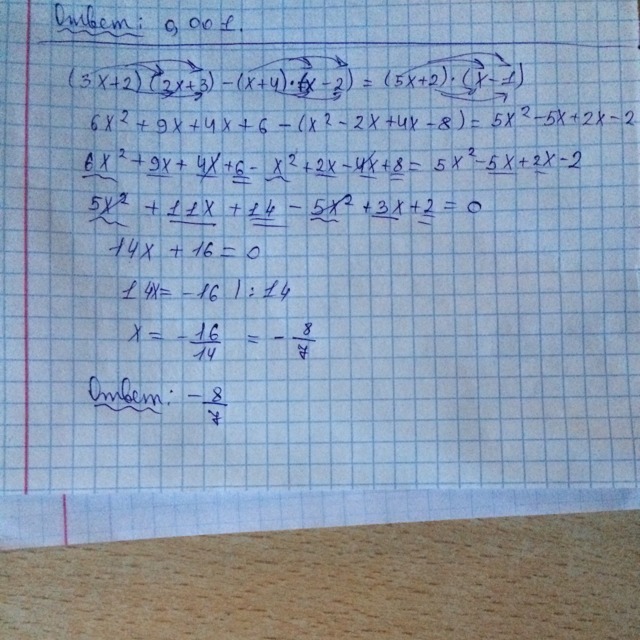 Ответ: 0,001.
(3x+2)(2x+3)-(x+4)·(x-2)=(5x+2)·(x-1)
6x²+9x+4x+6-(x²-2x+4x-8)=5x²-5x+2x-2
6x²+9x+4x+6-x²+2x-4x+8=5x²-5x+2x-2
5x²+11x+14-5x²+3x+2=0
14x+16=0
14x=-16 | :14
x=-16/14=-8/7
Ответ: -8/7